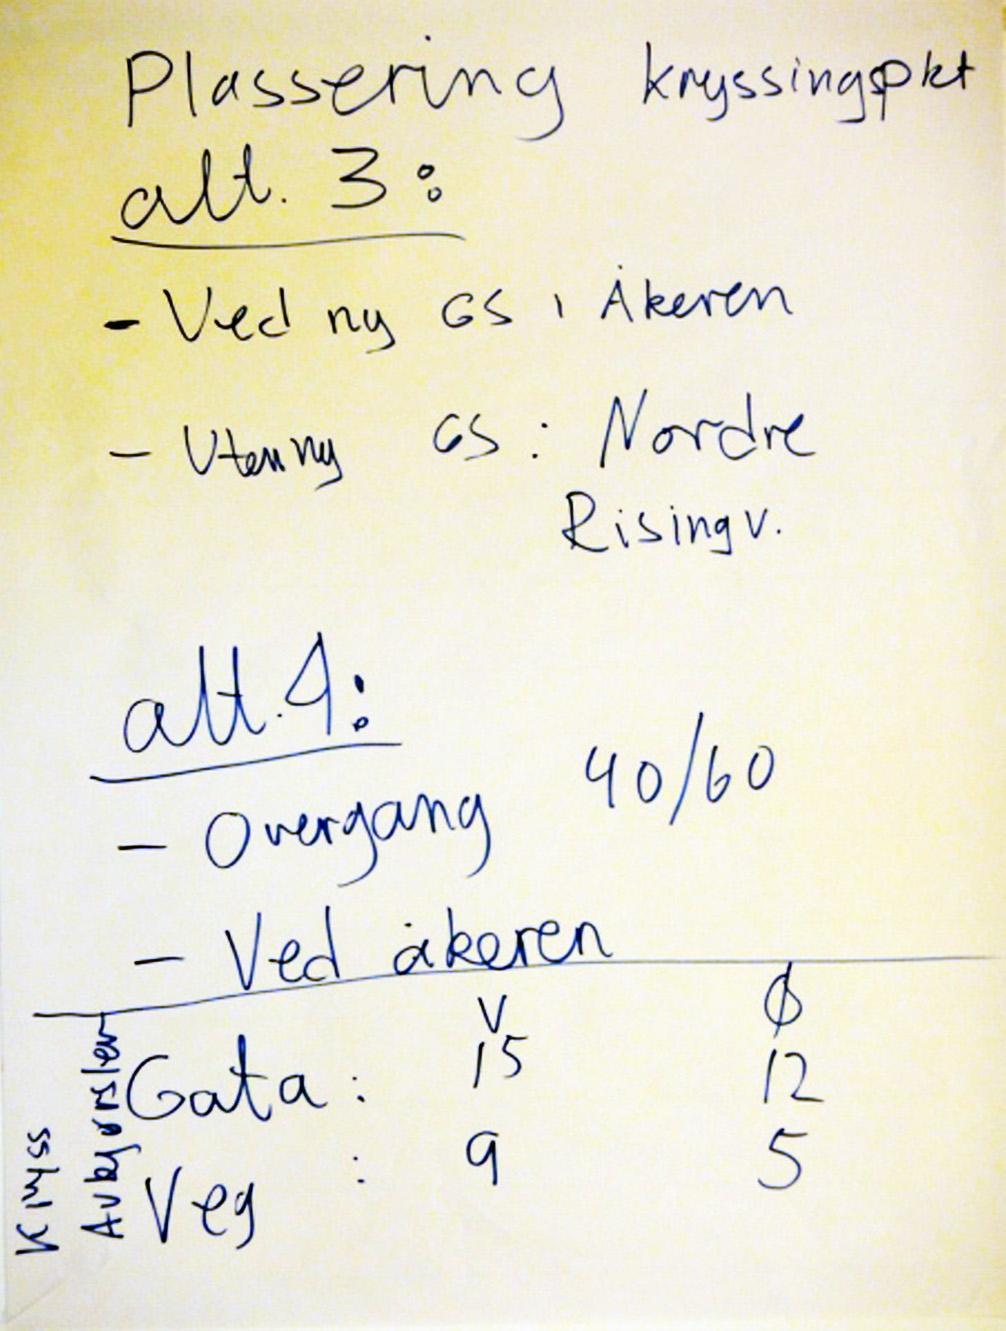 Plassering kryssingspkt
alt. 3:
- Ved ny GS i Åkeren
- Uten ny GS: Nordre
Rising v.
alt. 4:
- Overgang 40/60
- Ved åkeren
V Ø
Gata: 15 12
Veg : 9 5
Kryss
Avkjørsler